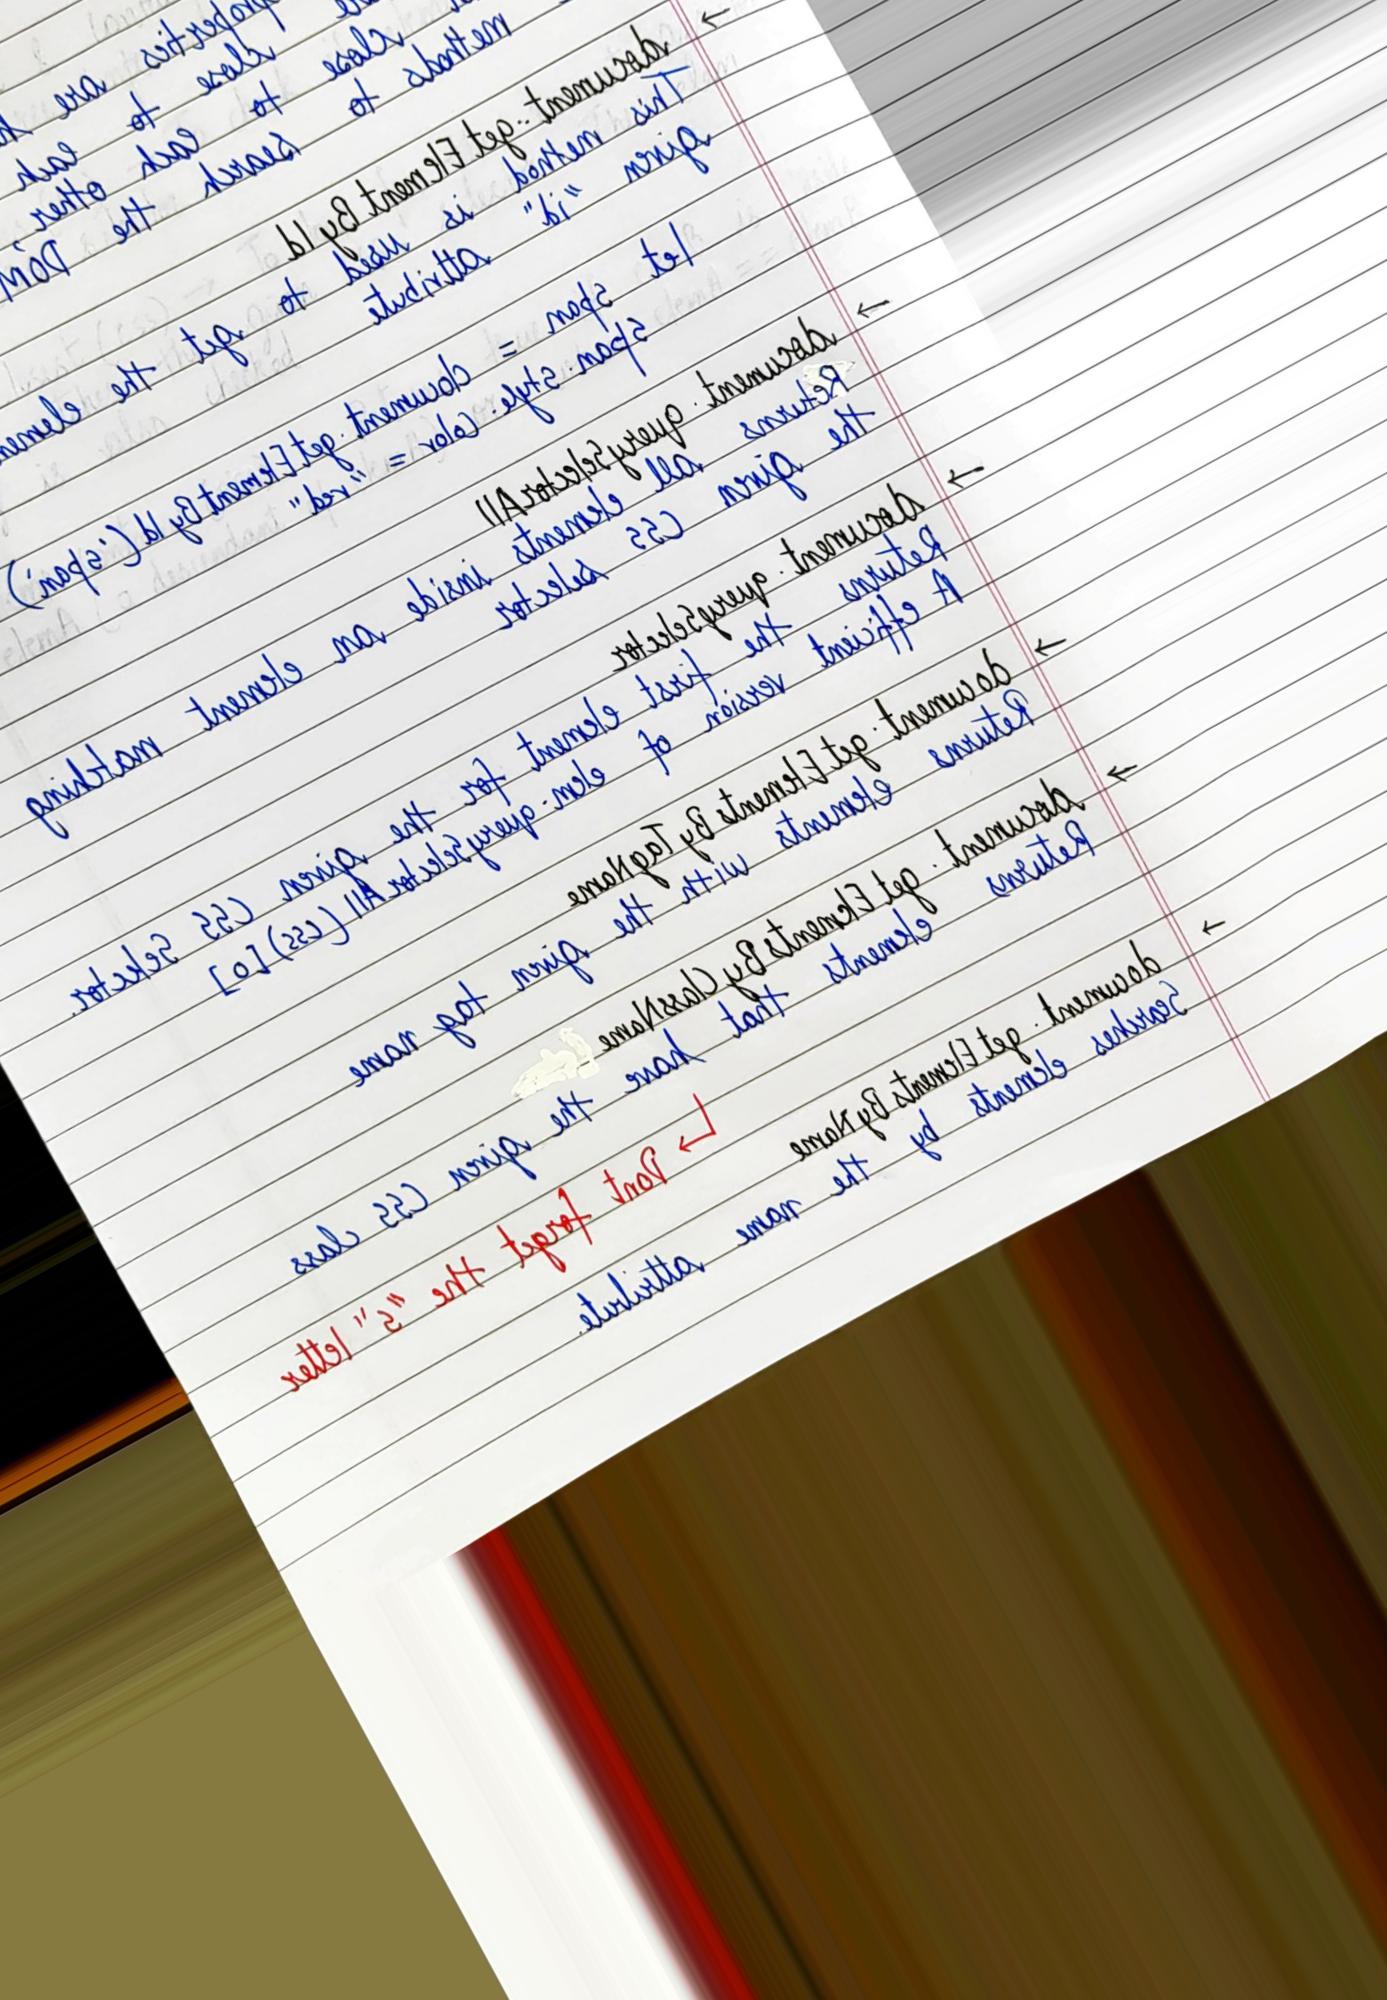 properties are
close to each
close to each other
methods to search the DOM
→ document.getElementById
This method is used to get the element
given "id" attribute
let span = document.getElementById('span')
span.style.color = "red"
→ document.querySelectorAll
Returns all elements inside an element matching
the given CSS selector
→ document.querySelector
Returns the first element for the given CSS Selector.
A efficient version of elem.querySelectorAll(css)[0]
→ document.getElementsByTagName
Returns elements with the given tag name
→ document.getElementsByClassName
Returns elements that have the given CSS class
↳ Dont forget the "s" letter
→ document.getElementsByName
Searches elements by the name attribute.